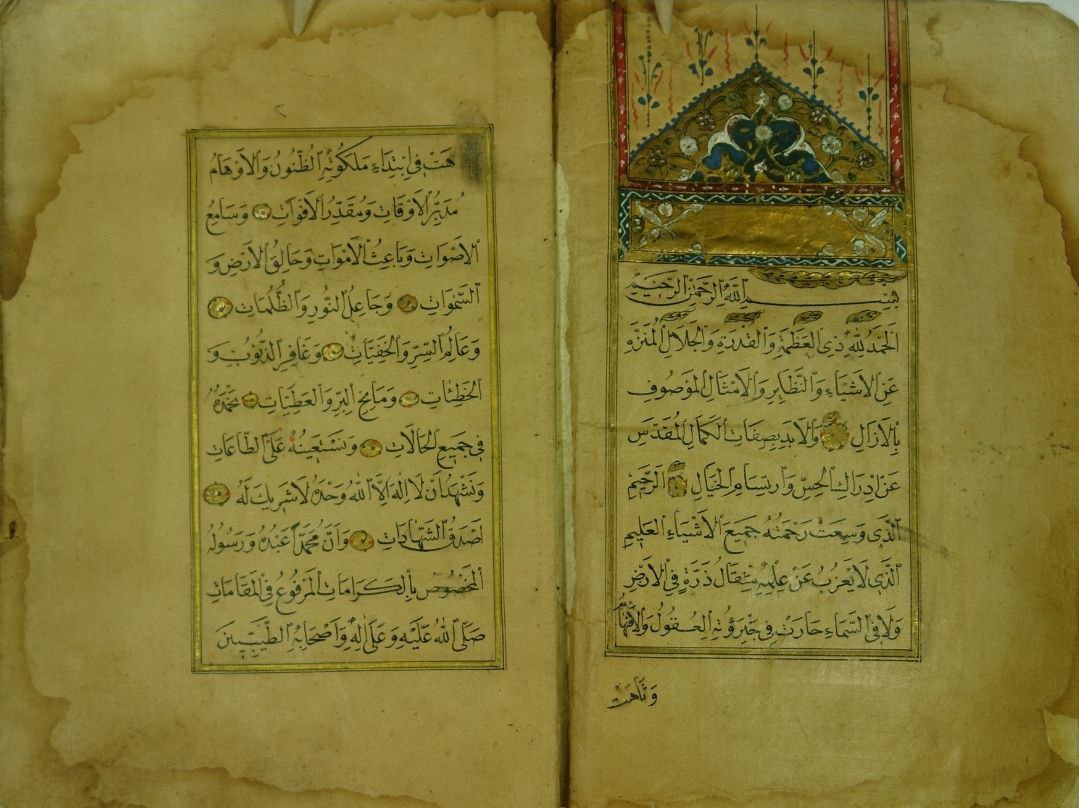 بِسْمِ اللّٰهِ الرَّحْمٰنِ الرَّحِيْمِ
اَلْحَمْدُ لِلّٰهِ ذِى الْعَظَمَةِ وَالْقُدْرَةِ وَالْجَلَالِ الْمُنَزَّهِ
عَنِ الْاَشْبَاءِ وَالنَّظَايِرِ وَالْاَمْثَالِ الْمَوْصُوفِ
بِالْاَزَالِ وَالْاَبَدِ بِصِفَاتِ الْكَمَالِ الْمُقَدَّسِ
عَنْ اِدْرَاكِ الْحِسِّ وَارْتِسَامِ الْخَيَالِ الرَّحِيْمِ
الَّذِى وَسِعَتْ رَحْمَتُهُ جَمِيعَ الْاَشْيَاءِ الْعَلِيْمِ
الَّذِى لَا يَعْزُبُ عَنْ عِلْمِهِ مِثْقَالُ ذَرَّةٍ فِى الْاَرْضِ
وَلَا فِى السَّمَاءِ حَارَتْ فِى جَبَرُوْتِهِ الْعُقُولُ وَالْاَفْهَامُ
وَتَاهَتْ
هَتْ فِى اِبْتِدَاءِ مَلَكُوتِهِ الظُّنُونُ وَالْاَوْهَامُ
مُدَبِّرِ الْاَوْقَاتِ وَمُقَدِّرِ الْاَقْوَاتِ وَسَامِعِ
الْاَصْوَاتِ وَبَاعِثِ الْاَمْوَاتِ وَخَالِقِ الْاَرْضِ وَ
السَّمٰوَاتِ وَجَاعِلِ النُّورِ وَالظُّلُمَاتِ
وَعَالِمِ السِّرِّ وَالْخَفِيَّاتِ وَغَافِرِ الذُّنُوبِ وَ
الْخَطِئَاتِ وَمَانِحِ الْبِرِّ وَالْعَطِيَّاتِ نَحْمَدُهُ
فِى جَمِيعِ الْحَالَاتِ وَنَسْتَعِينُهُ عَلَى الطَّاعَاتِ
وَنَشْهَدُ اَنْ لَا اِلٰهَ اِلَّا اللّٰهُ وَحْدَهُ لَا شَرِيكَ لَهُ
اَصْدَقُ الشَّهَادَاتِ وَاَنَّ مُحَمَّدًا عَبْدُهُ وَرَسُولُهُ
الْمَخْصُوصُ بِالْكَرَامَاتِ الْمَرْفُوعُ فِى الْمَقَامَاتِ
صَلَّى اللّٰهُ عَلَيْهِ وَعَلٰى اٰلِهِ وَاَصْحَابِهِ الطَّيِّبِينَ